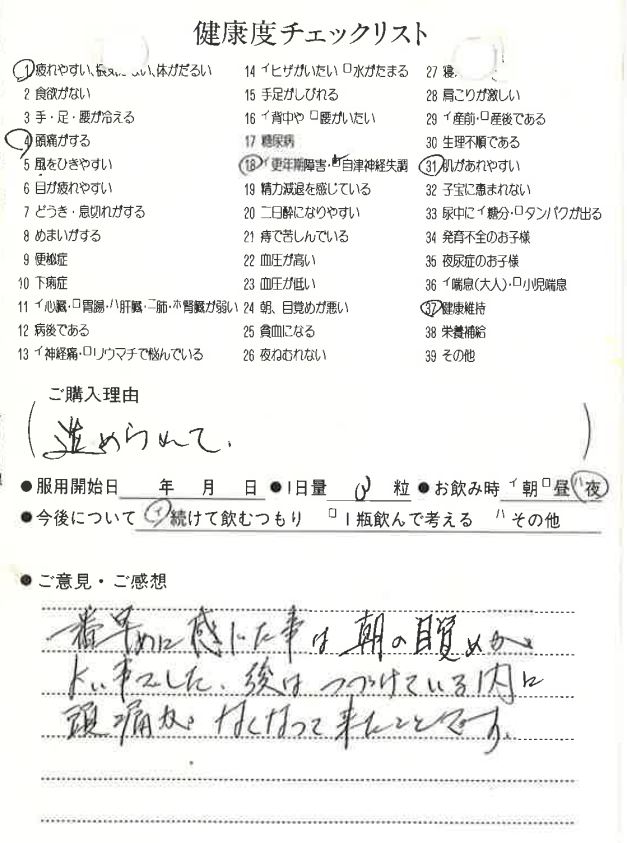 健康度チェックリスト
1 疲れやすい、 ない、体がだるい
2 食欲がない
3 手・足・腰が冷える
4 頭痛がする
5 風をひきやすい
6 目が疲れやすい
7 どうき・息切れがする
8 めまいがする
9 便秘症
10 下病症
11 イ心臓・ロ胃腸・ハ肝臓・ニ肺・ホ腎臓が弱い
12 病後である
13 イ神経痛・ロリウマチで悩んでいる
14 イヒザがいたい ロ水がたまる
15 手足がしびれる
16 イ背中や ロ腰がいたい
17 糖尿病
18 イ更年期障害・ロ自津神経失調
19 精力減退を感じている
20 二日酔になりやすい
21 痔で苦しんでいる
22 血圧が高い
23 血圧が低い
24 朝、目覚めが悪い
25 貧血になる
26 夜ねむれない
27 寝
28 肩こりが激しい
29 イ産前・ロ産後である
30 生理不順である
31 肌があれやすい
32 子宝に恵まれない
33 尿中にイ糖分・ロタンパクが出る
34 発育不全のお子様
35 夜尿症のお子様
36 イ喘息(大人)・ロ小児喘息
37 健康維持
38 栄養補給
39 その他
ご購入理由
(進められて.)
●服用開始日 年 月 日 ●1日量 粒 ●お飲み時 イ朝ロ昼ハ夜
●今後について イ続けて飲むつもり ロ1瓶飲んで考える ハその他
●ご意見・ご感想
一番早めに感じた事は朝の目覚めが
よい事でした、後はつづけている内に
頭痛がなくなって来たことです。